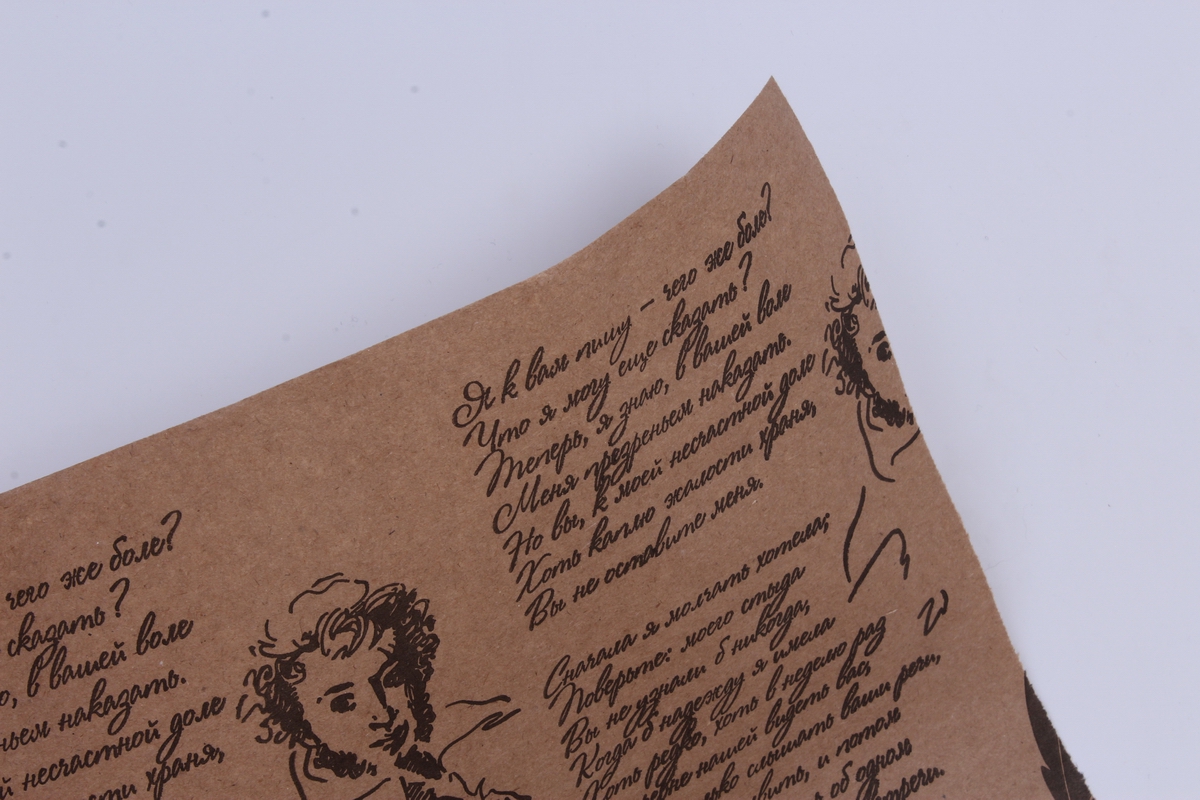 Я к вам пишу – чего же боле?
Что я могу еще сказать?
Теперь, я знаю, в вашей воле
Меня презреньем наказать.
Но вы, к моей несчастной доле
Хоть каплю жалости храня,
Вы не оставите меня.
Сначала я молчать хотела;
Поверьте: моего стыда
Вы не узнали б никогда,
Когда б надежду я имела
Хоть редко, хоть в неделю раз
нашей видеть вас,
слышать ваши речи,
и потом
об одном
чего же боле?
сказать?
в вашей воле
наказать.
несчастной доле
храня,